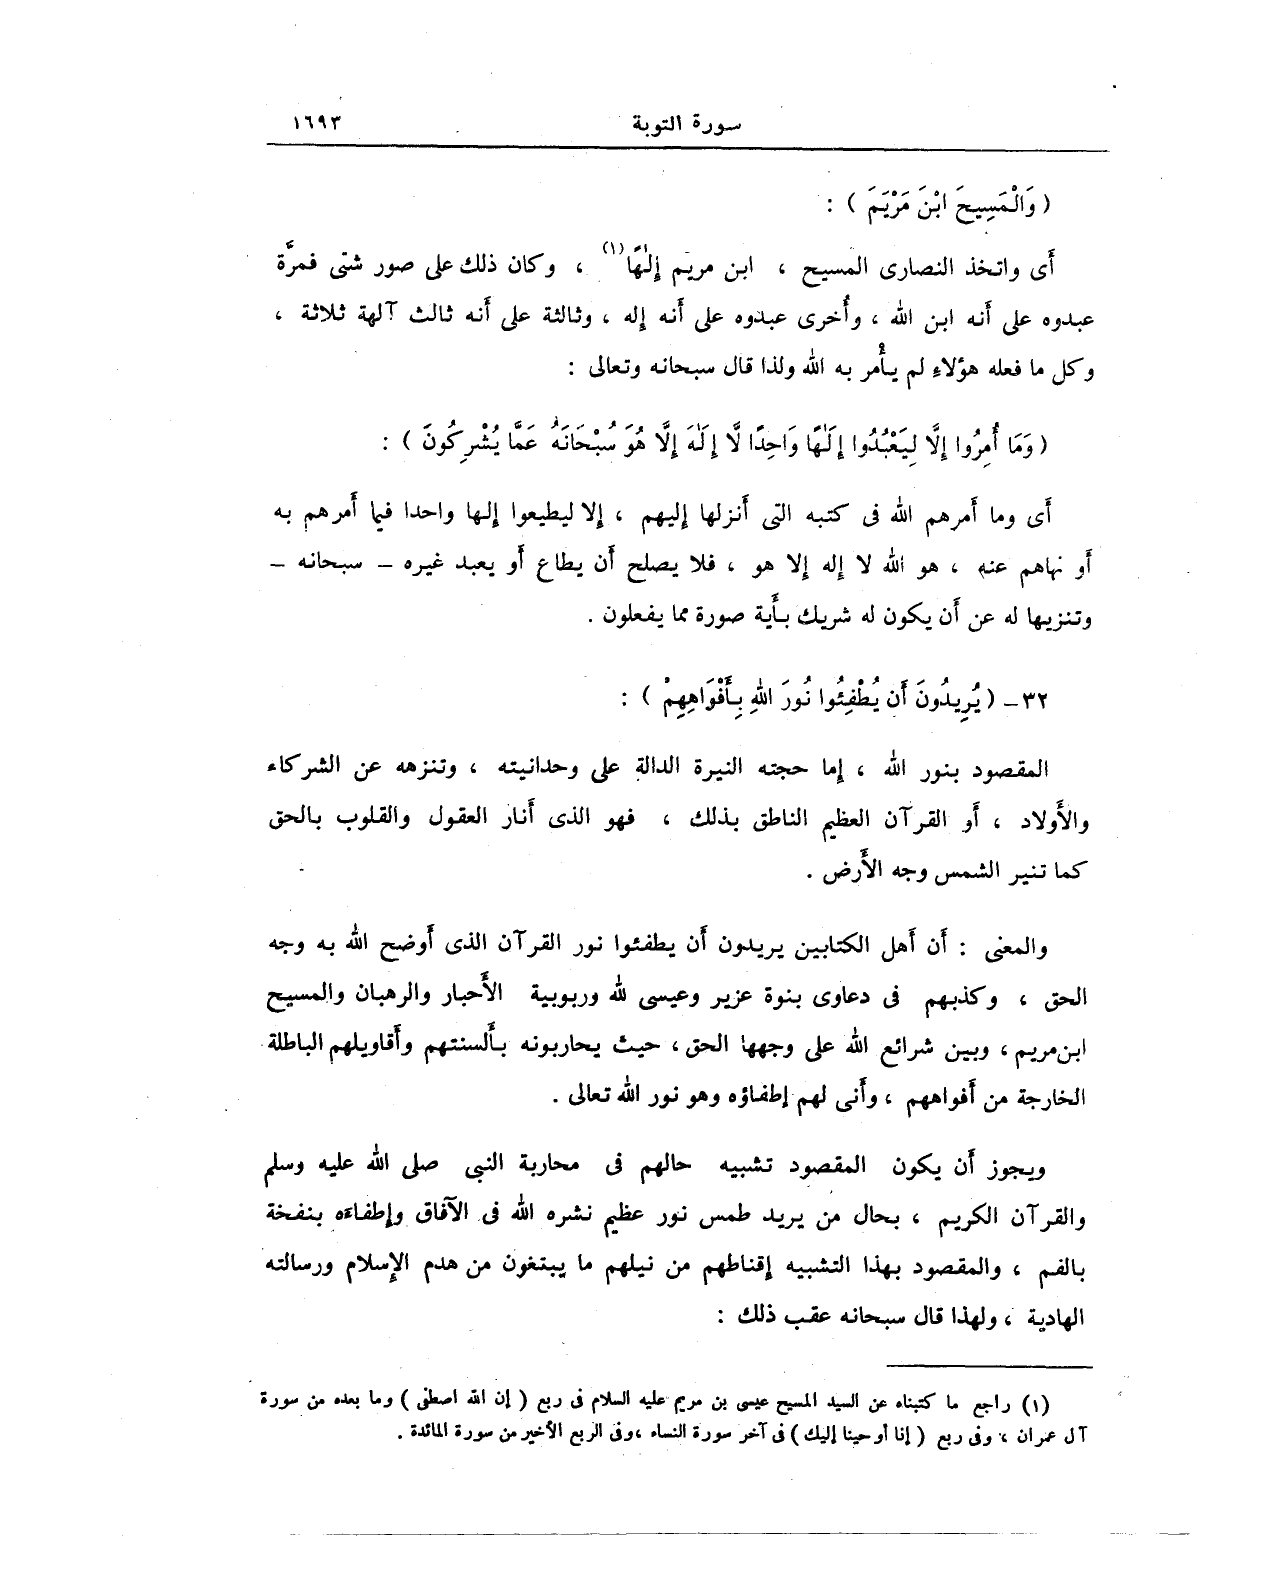 سورة التوبة ١٦٩٣
( وَالْمَسِيحَ ابْنَ مَرْيَمَ ) :
أَى واتخذ النصارى المسيح ، ابن مريم إِلٰهًا(١) ، وكان ذلك على صور شتى فمرَّة
عبدوه على أَنه ابن الله ، وأُخرى عبدوه على أَنه إله ، وثالثة على أَنه ثالث آلهة ثلاثة ،
وكل ما فعله هؤلاءِ لم يأْمر به الله ولذا قال سبحانه وتعالى :
( وَمَا أُمِرُوا إِلَّا لِيَعْبُدُوا إِلَٰهًا وَاحِدًا لَّا إِلَٰهَ إِلَّا هُوَ سُبْحَانَهُ عَمَّا يُشْرِكُونَ ) :
أَى وما أَمرهم الله فى كتبه التى أَنزلها إليهم ، إلا ليطيعوا إلها واحدا فيما أَمرهم به
أَو نهاهم عنه ، هو الله لا إله إلا هو ، فلا يصلح أَن يطاع أَو يعبد غيره – سبحانه –
وتنزيها له عن أَن يكون له شريك بأَية صورة مما يفعلون .
٣٢ – ( يُرِيدُونَ أَن يُطْفِئُوا نُورَ اللهِ بِأَفْوَاهِهِمْ ) :
المقصود بنور الله ، إما حجته النيرة الدالة على وحدانيته ، وتنزهه عن الشركاء
والأَولاد ، أَو القرآن العظيم الناطق بذلك ، فهو الذى أَنار العقول والقلوب بالحق
كما تنير الشمس وجه الأَرض .
والمعنى : أَن أَهل الكتابين يريدون أَن يطفئوا نور القرآن الذى أَوضح الله به وجه
الحق ، وكذبهم فى دعاوى بنوة عزير وعيسى لله وربوبية الأَحبار والرهبان والمسيح
ابن مريم ، وبين شرائع الله على وجهها الحق ، حيث يحاربونه بأَلسنتهم وأَقاويلهم الباطلة
الخارجة من أَفواههم ، وأَنى لهم إطفاؤه وهو نور الله تعالى .
ويجوز أَن يكون المقصود تشبيه حالهم فى محاربة النبى صلى الله عليه وسلم
والقرآن الكريم ، بحال من يريد طمس نور عظيم نشره الله فى الآفاق وإطفاءه بنفخة
بالفم ، والمقصود بهذا التشبيه إقناطهم من نيلهم ما يبتغون من هدم الإسلام ورسالته
الهادية ، ولهذا قال سبحانه عقب ذلك :
(١) راجع ما كتبناه عن السيد المسيح عيسى بن مريم عليه السلام فى ربع ( إن الله اصطفى ) وما بعده من سورة
آل عمران ، وفى ربع ( إنا أوحينا إليك ) فى آخر سورة النساء ، وفى الربع الأخير من سورة المائدة .